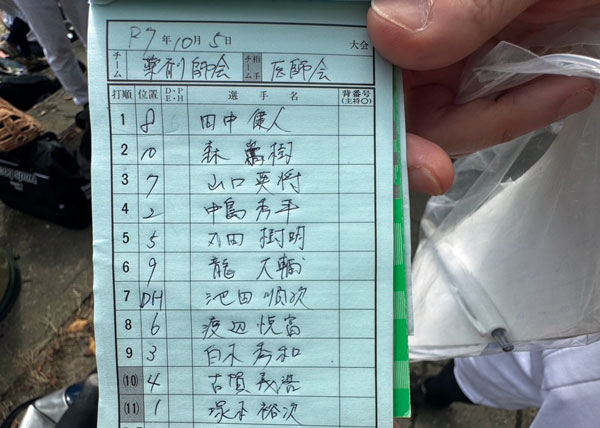 R7年10月5日 大会
チーム 薬剤師会 相手チーム 医師会
打順 位置 D・P E・H 選手名 背番号(主将○)
1 8 田中 健人
2 10 森 樹
3 7 山口 英将
4 2 中島 秀平
5 5 田 樹明
6 9 龍 大輔
7 DH 池田 順次
8 6 渡辺 悦富
9 3 白木 秀和
(10) 4 古賀 義浩
(11) 1 塚本 裕次